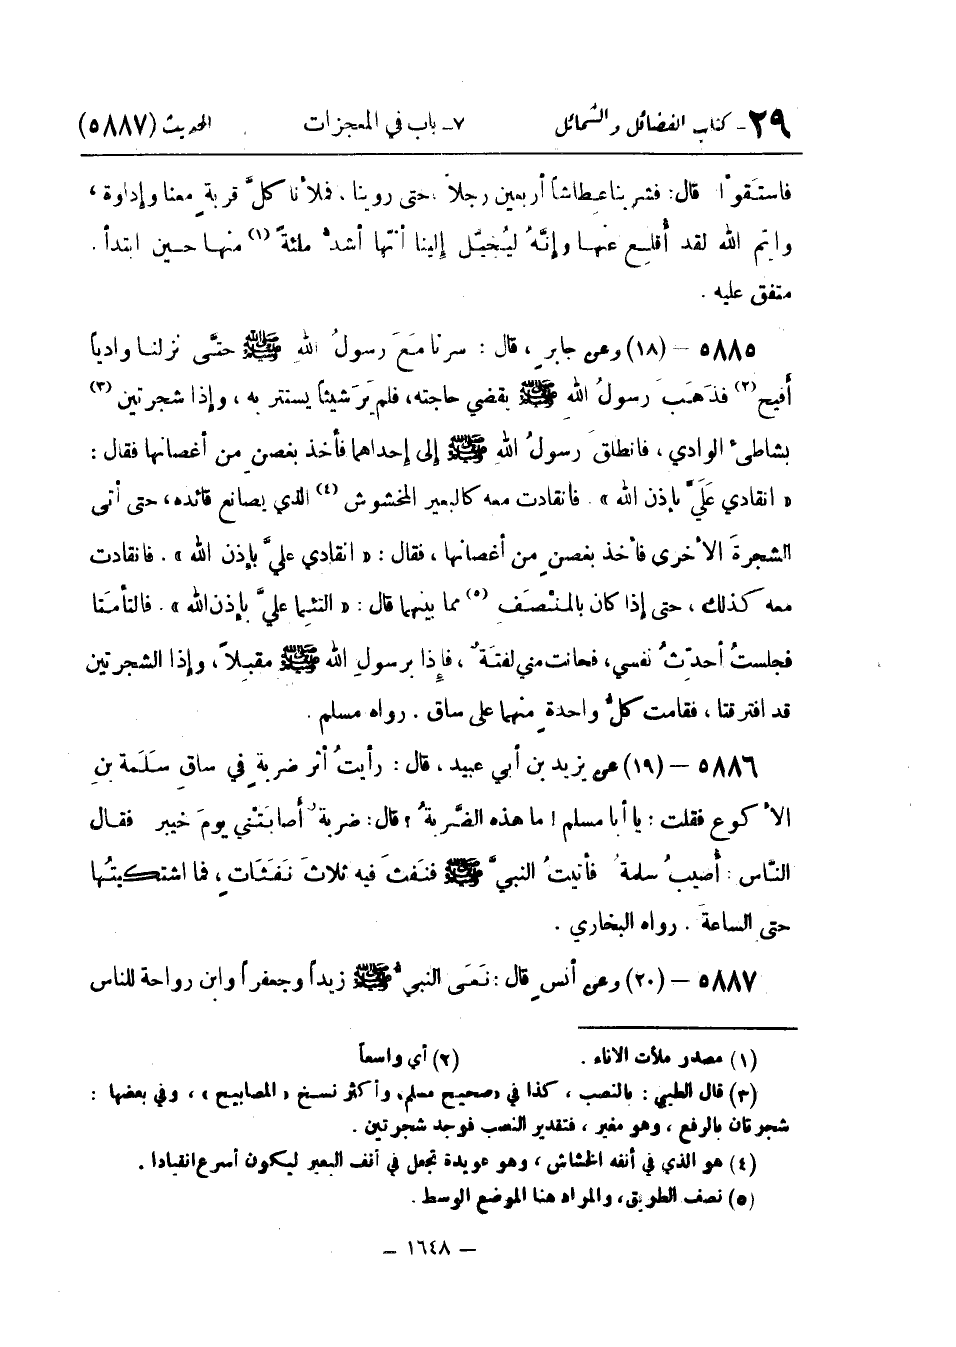 ٢٩ـ كتاب الفضائل والشمائل ٧ـ باب في المعجزات الحديث (٥٨٨٧)
فاستَقَوْا قال: فشربنا عِطاشاً أربعين رجلاً، حتى روينا، فملأنا كلَّ قربةٍ معنا وإداوة،
وايم الله لقد أُقلِع عنها وإنَّهُ ليُخيَّل إلينا أنّها أشدُّ ملئةً (١) منها حين ابتدأ.
متفق عليه.
٥٨٨٥ – (١٨) وعن جابرٍ، قال: سرنا مَعَ رسولِ اللهِ ﷺ حتَّى نزلنا وادياً
أَفيح (٢) فذهَبَ رسولُ اللهِ ﷺ يقضي حاجته، فلم يَرَ شيئاً يستتر به، وإذا شجرتين (٣)
بشاطىء الوادي، فانطلقَ رسولُ اللهِ ﷺ إلى إحداهما فأخذ بغصنٍ من أغصانها فقال:
« انقادي عَلَيَّ بإذن الله ». فانقادت معه كالبعير المخشوش (٤) الذي يصانع قائده، حتى أتى
الشجرةَ الأخرى فأخذ بغصنٍ من أغصانها، فقال: « انقادي عليَّ بإذن الله ». فانقادت
معه كذلك، حتى إذا كان بالمنْصَفِ (٥) مما بينهما قال: « التئما عليَّ بإذن الله ». فالتأمَتا
فجلستُ أحدِّثُ نفسي، فحانت مني لفتةٌ، فإِذا برسولِ الله ﷺ مقبلاً، وإذا الشجرتين
قد افترقتا، فقامت كلُّ واحدةٍ منهما على ساق. رواه مسلم.
٥٨٨٦ – (١٩) عن يزيد بن أبي عبيد، قال: رأيتُ أثر ضربةٍ في ساقِ سَلَمة بنِ
الأكوع فقلت: يا أبا مسلم! ما هذه الضَّربةُ؟ قال: ضربةٌ أصابَتْني يومَ خيبر فقال
النّاس: أُصيبُ سلمةُ فأتيتُ النبيَّ ﷺ فنفثَ فيه ثلاثَ نَفَثَاتٍ، فما اشتكيتُها
حتى الساعةَ. رواه البخاري.
٥٨٨٧ – (٢٠) وعن أنسٍ قال: نَعَى النبيُّ ﷺ زيداً وجعفراً وابن رواحة للناس
(١) مصدر ملأت الاناء. (٢) أي واسعاً
(٣) قال الطيبي: بالنصب، كذا في «صحيح مسلم» وأكثر نسخ «المصابيح»، وفي بعضها:
شجرتان بالرفع، وهو مغير، فتقدير النصب فوجد شجرتين.
(٤) هو الذي في أنفه الخشاش، وهو عويدة تجعل في أنف البعير ليكون أسرع انقيادا.
(٥) نصف الطريق، والمراد هنا الموضع الوسط.
– ١٦٤٨ –